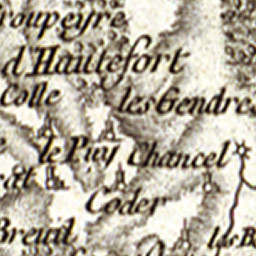 roupeyre
d'Hautefort
Colle
les Gendre
le Puy Chancel
rat
Coder
Breuil
les B